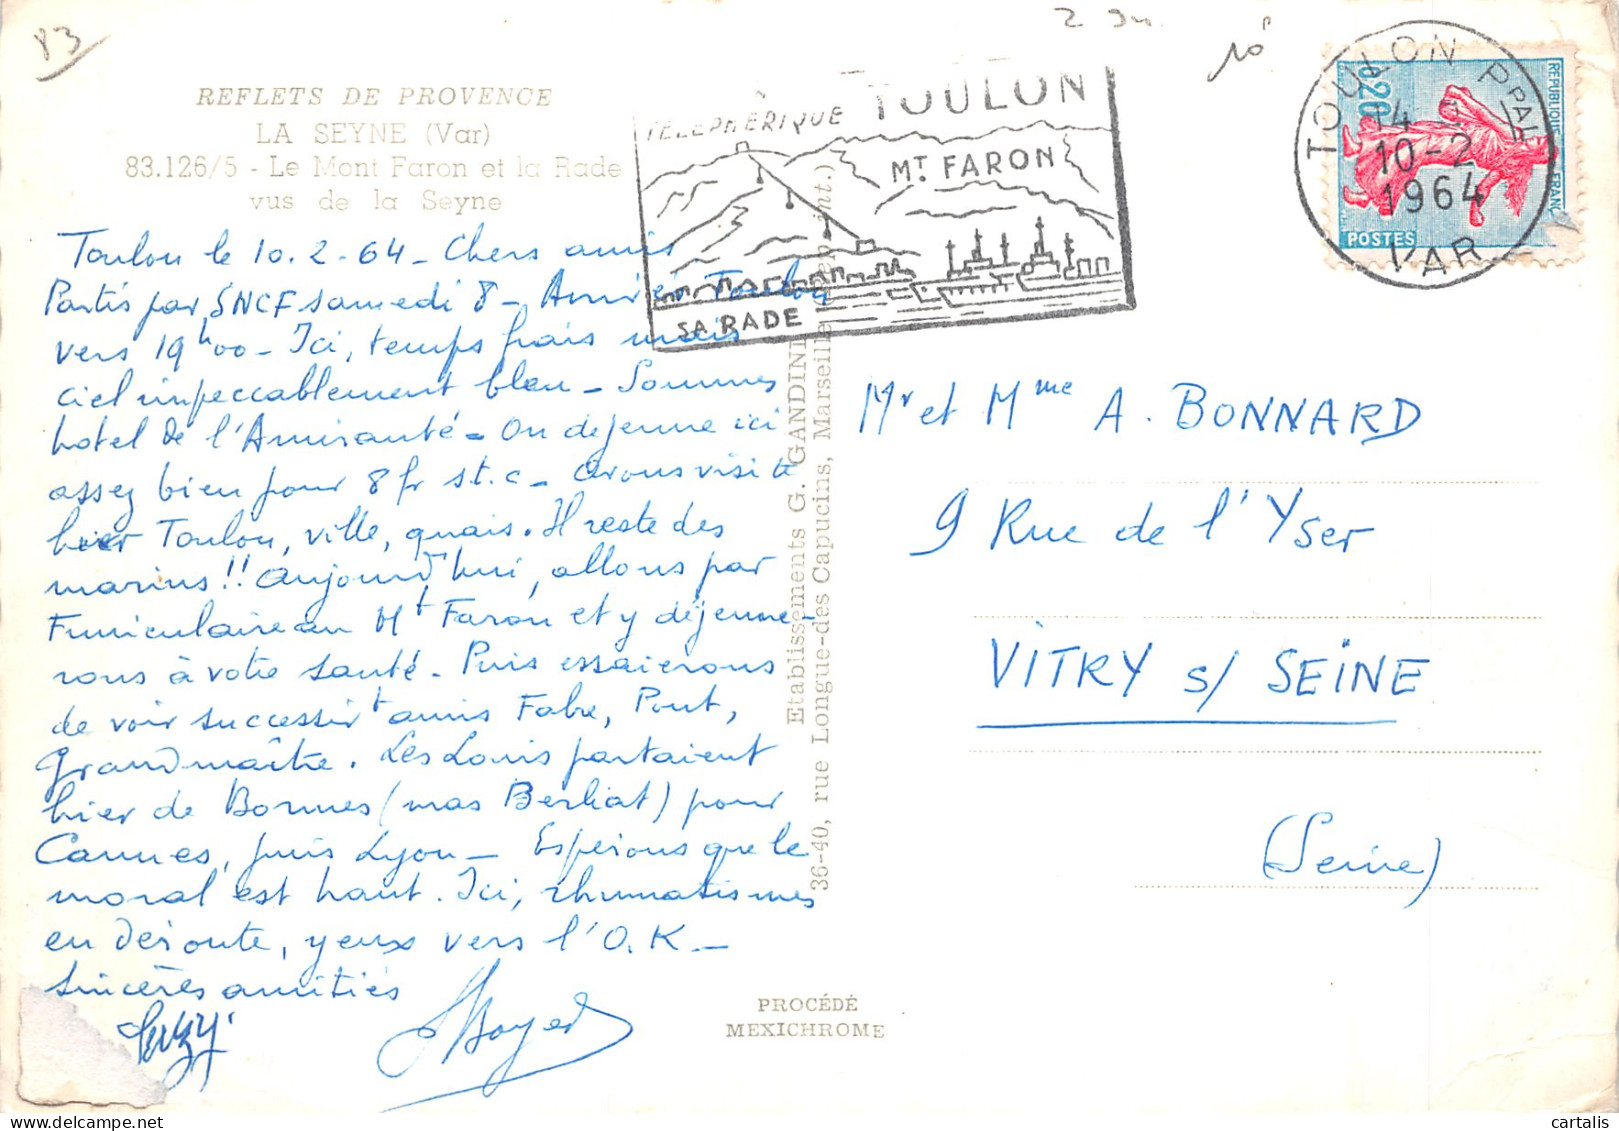 83
10
REFLETS DE PROVENCE
LA SEYNE (Var)
83.126/5 - Le Mont Faron et la Rade
vus de la Seyne
TÉLÉPHÉRIQUE TOULON
MT. FARON
SA RADE
TOULON PPAL
14
10-2
1964
VAR
0,20
REPUBLIQUE FRANC
POSTES
Toulon le 10.2-64 - Chers amis
Partis par SNCF samedi 8 - Arrivés Toulon
vers 19h00 - Ici, temps frais mais
ciel impeccablement bleu - Sommes
hotel de l'Amirauté - On dejeune ici
assez bien pour 8 fr st.c - Avons visité
hier Toulon, ville, quais. Il reste des
marins!! Aujourd'hui, allons par
Funiculaire au Mt Faron et y déjeune-
rons à votre santé. Puis essaierons
de voir successivt amis Fabre, Pont,
Grandmaître. Les Louis partaient
hier de Bormes (mas Berliat) pour
Cannes, puis Lyon - Espérons que le
moral est haut. Ici, rhumatismes
en déroute, yeux vers l'O.K. -
Sincères amitiés
Suzy
Boyer
Mr et Mme A. BONNARD
9 Rue de l'Yser
VITRY s/ SEINE
(Seine)
Etablissements G. GANDINI
36-40, rue Longue-des-Capucins, Marseille
PROCÉDÉ
MEXICHROME
cartalis